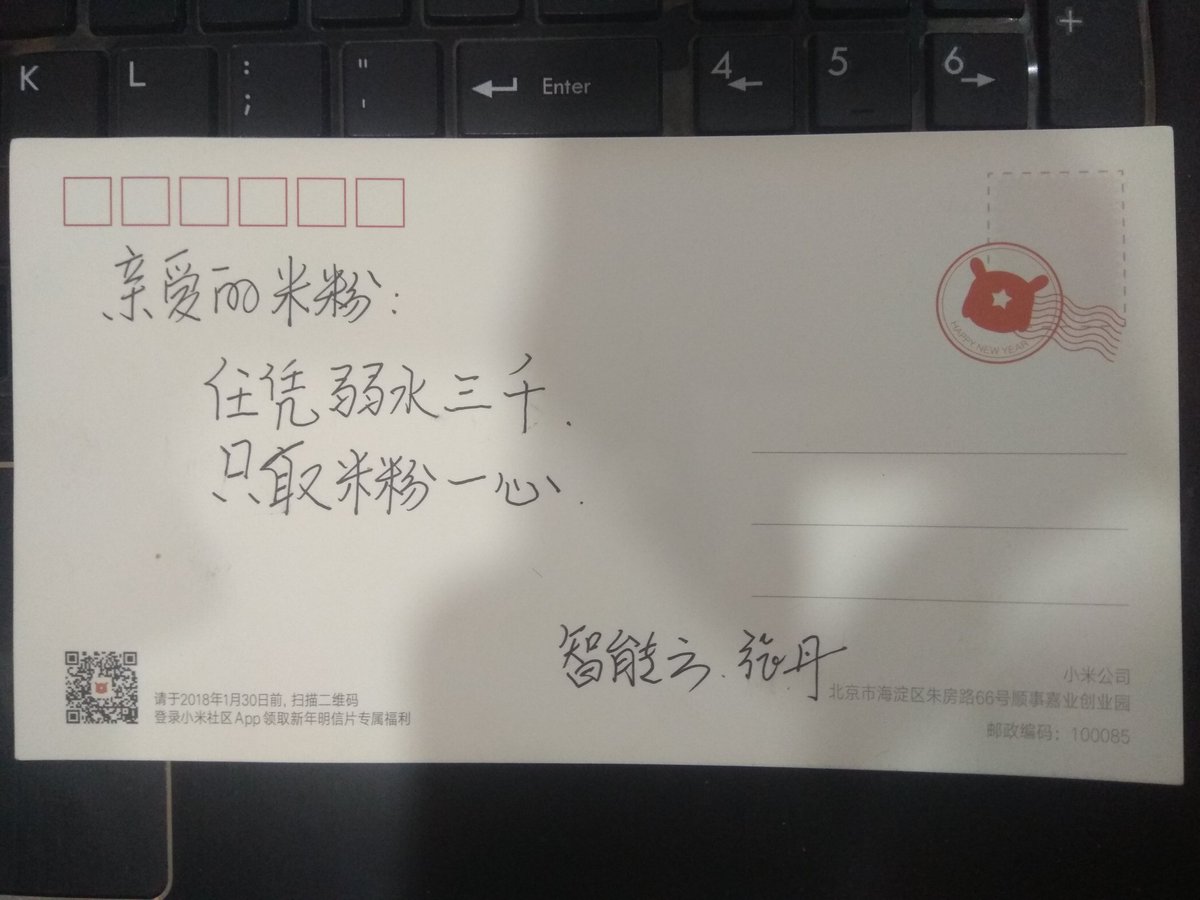 K
L
:
;
"
'
Enter
4
5
6
+
亲爱的米粉:
任凭弱水三千.
只取米粉一心.
HAPPY NEW YEAR
智能云.张丹
请于2018年1月30日前,扫描二维码
登录小米社区App领取新年明信片专属福利
小米公司
北京市海淀区朱房路66号顺事嘉业创业园
邮政编码:100085